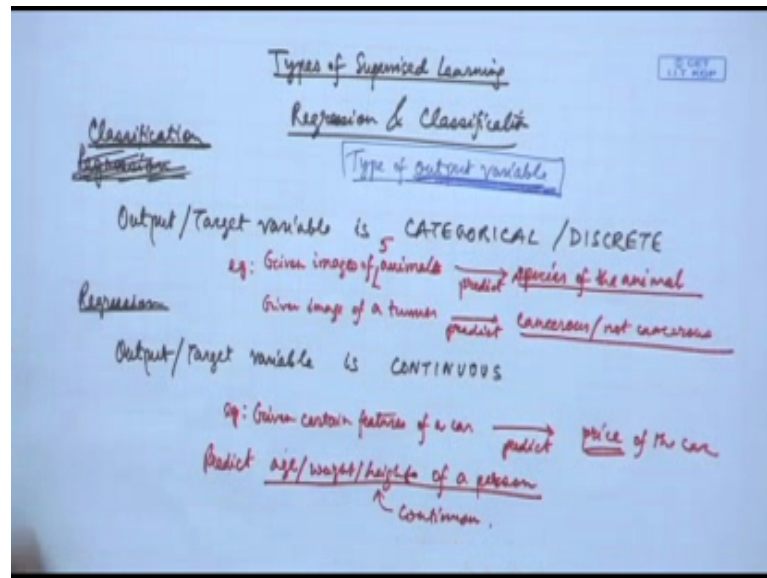 Types of Supervised Learning
© CET
I.I.T. KGP
Regression & Classification
Classification
Regression
Type of output variable
Output/Target variable is CATEGORICAL / DISCRETE
eg: Given images of 5 animals predict species of the animal
Given image of a tumor predict cancerous/not cancerous
Regression
Output/Target variable is CONTINUOUS
eg: Given certain features of a car predict price of the car
Predict age/weight/height of a person
continuous.